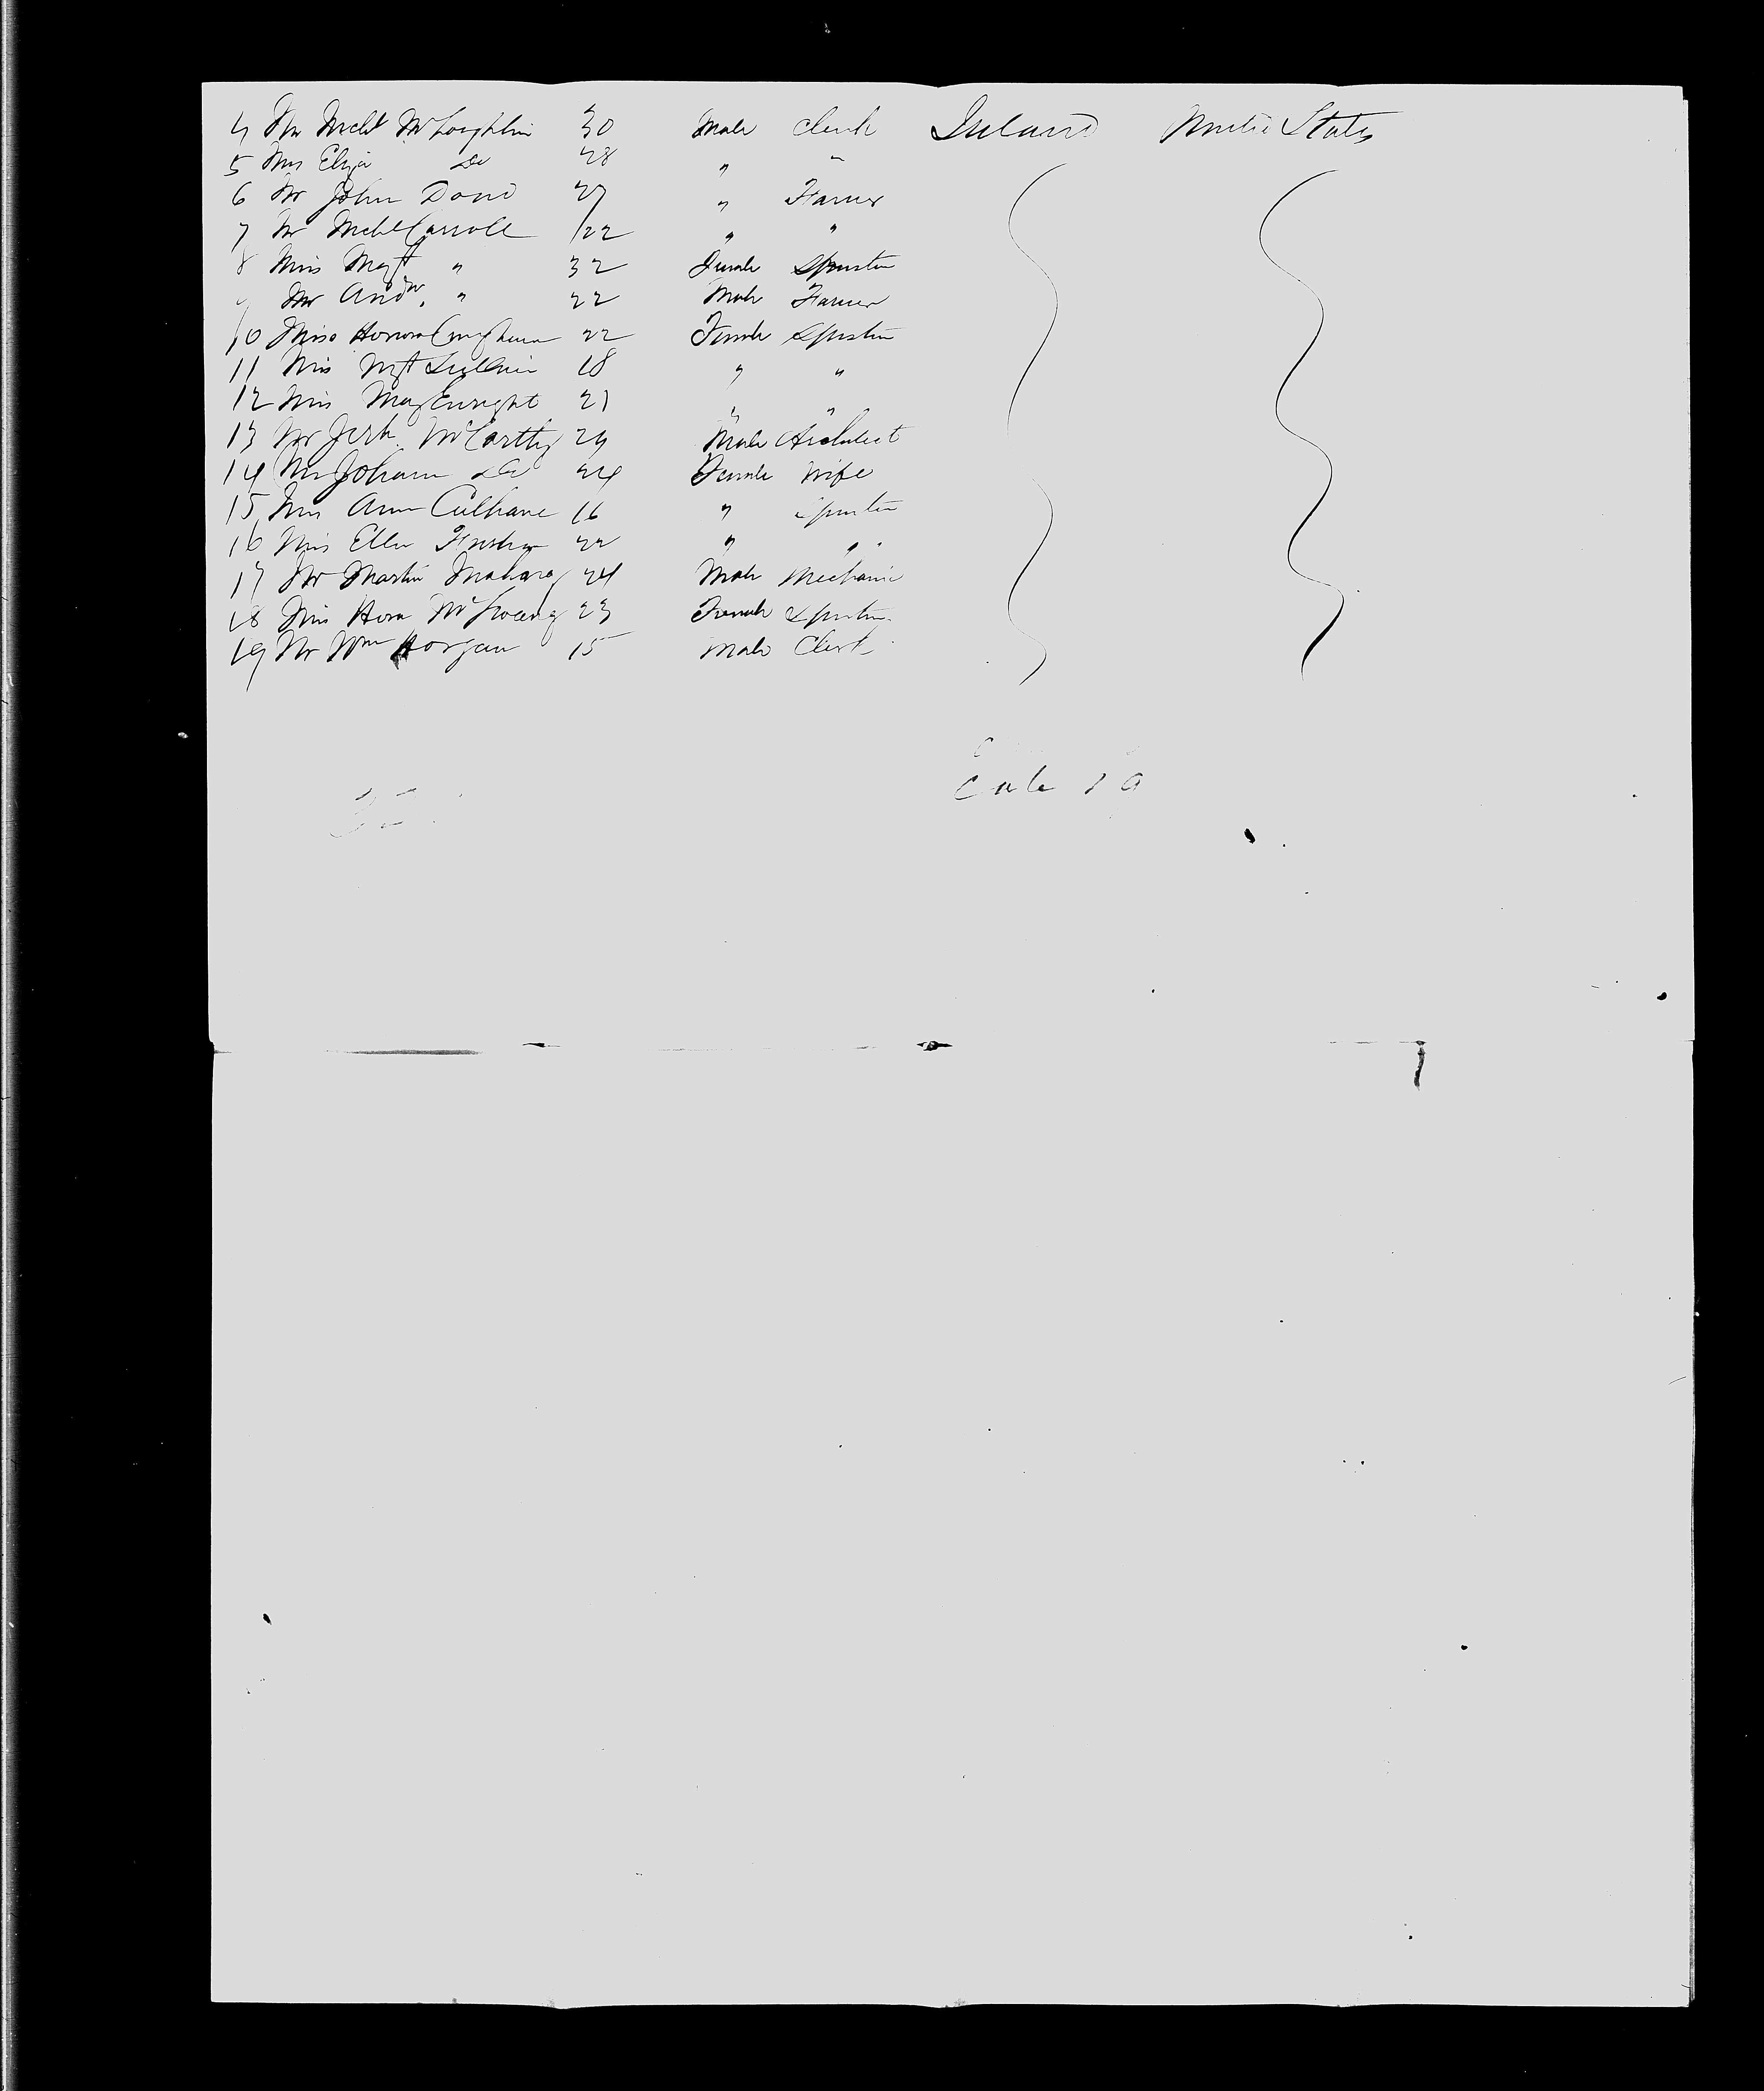 4 Mr Michl McLoughlin 30 Male Clerk Ireland United States
5 Mrs Eliza Do 28 " "
6 Mr John Dond 27 " Farmer
7 Mr Michl Carroll 22 " "
8 Miss Magt " 32 Female Spinster
9 Mr Andw. " 22 Male Farmer
10 Miss Honora 22 Female Spinster
11 Miss Mgt Sullivan 18 " "
12 Miss May Enright 21 " "
13 Mr Jerh. McCarthy 29 Male Architect
14 Mrs Johana Do 24 Female Wife
15 Miss Ann Culhane 16 " Spinster
16 Miss Ellen 22 " "
17 Mr Martin Mahony 24 Male Mechanic
18 Miss Hora 23 Female Spinster
19 Mr Wm Horgan 15 Male Clerk